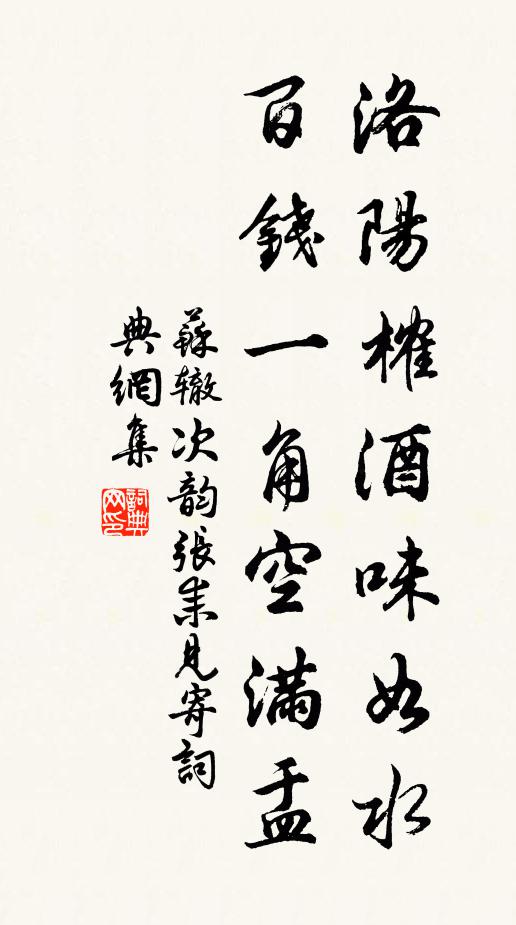 洛陽榷酒味如水
百錢一角空滿盂
蘇辙次韵張耒見寄詞
典網集
詞典网印